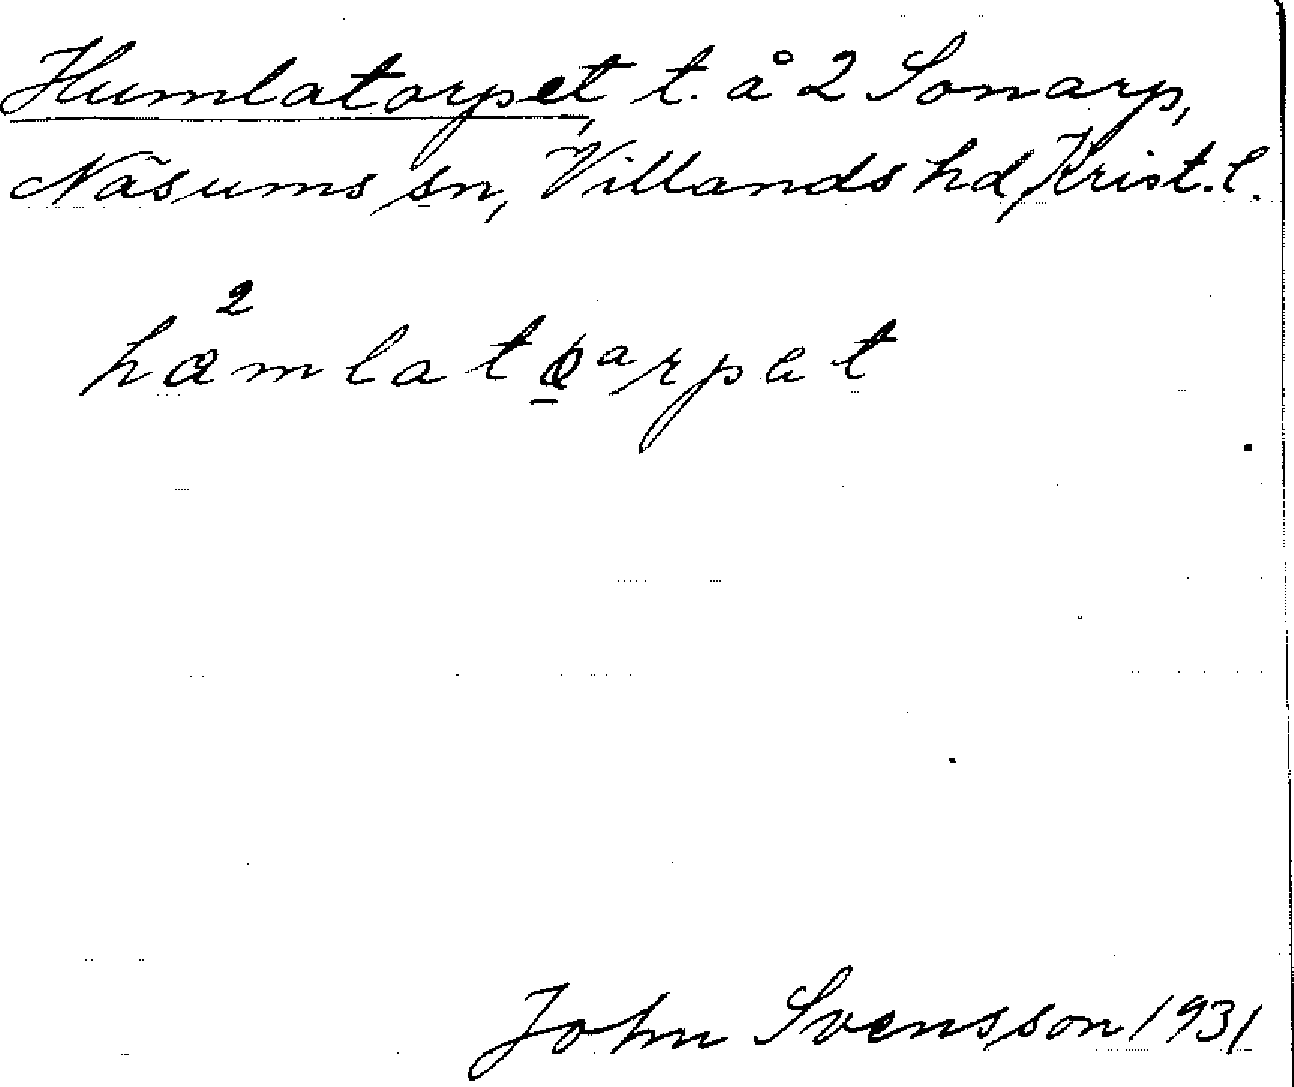 Humlatorpet, t. å 2 Sonarp,
Näsums sn, Villands hd, Krist. l.
John Svensson 1931